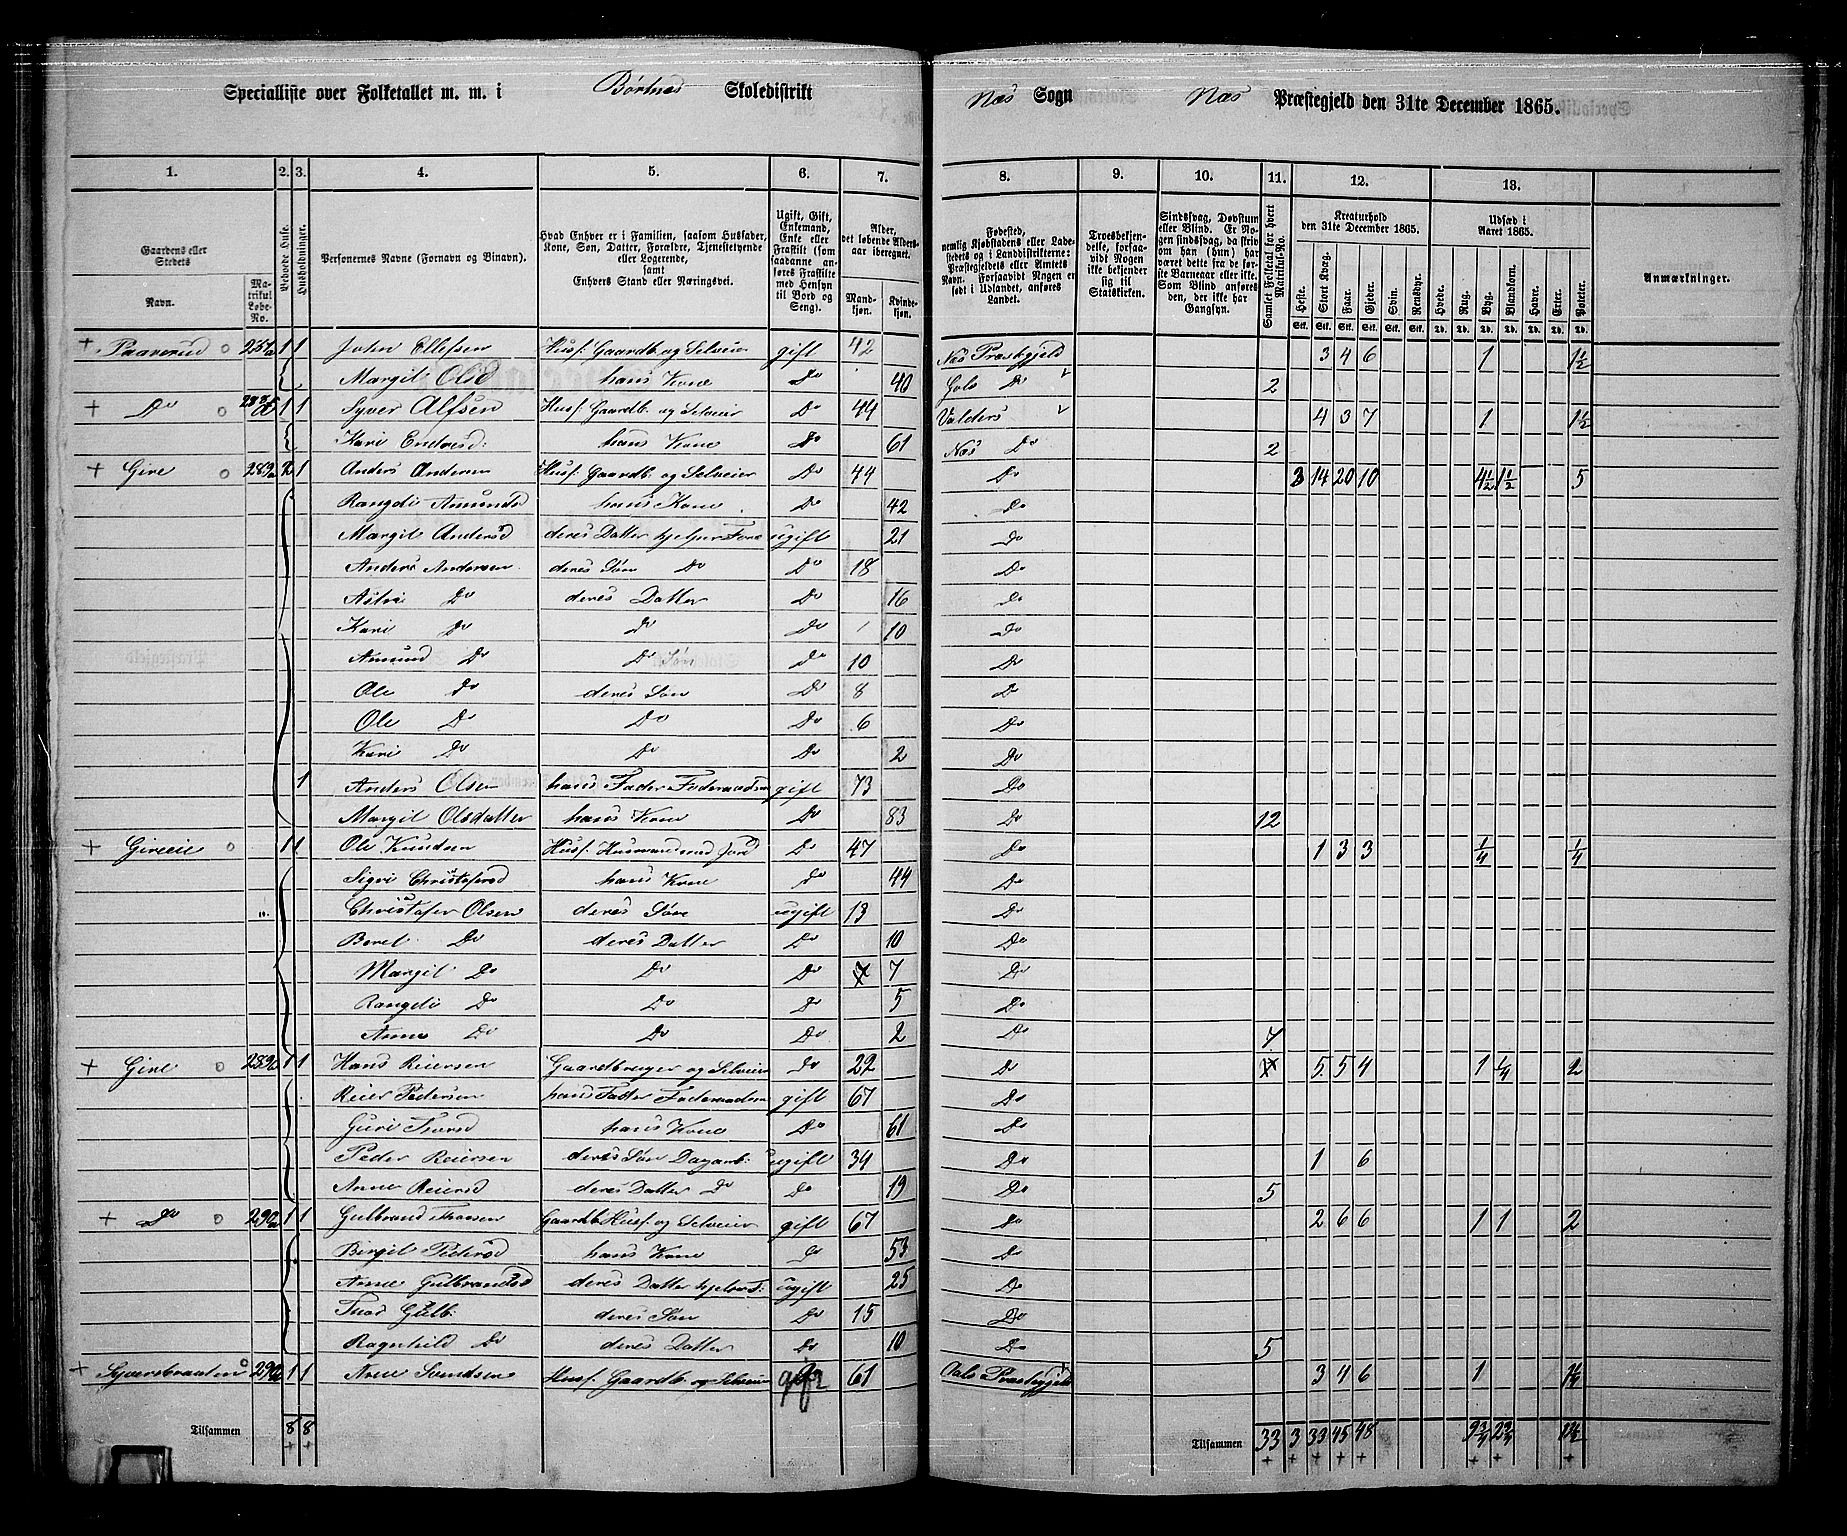 Specialliste over Folketallet m. m. i Børtnes Skoledistrikt Næs Sogn Næs Præstegjeld den 31te December 1865.
1. 2. 3. 4. 5. 6. 7. 8. 9. 10. 11. 12. 13.
Gaardens eller Stedets Navn. Matrikul Løbe-No. Beboede Huse. Husholdninger. Personernes Navne (Fornavn og Binavn). Hvad Enhver er i Familien, saasom Husfader, Kone, Søn, Datter, Forældre, Tjenestetyende eller Logerende, samt Enhvers Stand eller Næringsvei. Ugift, Gift, Enkemand, Enke eller Fraskilt (som saadanne anføres Fraskilte med Hensyn til Bord og Seng). Alder, det løbende Aldersaar iberegnet. Mandkjøn. Kvindekjøn. Fødested, nemlig Kjøbstadens eller Ladestedets og i Landdistrikterne: Præstegjeldets eller Amtets Navn. Forsaavidt Nogen er født i Udlandet, anføres Landet. Troesbekjendelse, forsaavidt Nogen ikke bekjender sig til Statskirken. Sindssvag, Døvstum eller Blind. Er Nogen sindssvag, da skriv om han (hun) har været dette fra de første Barneaar eller ikke. Som Blind anføres den, der ikke har Gangsyn. Samlet Folketal for hvert Matrikul-No. Kreaturhold den 31te December 1865. Heste. Stort Kvæg. Faar. Gjeder. Svin. Rensdyr. Udsæd i Aaret 1865. Hvede. Rug. Byg. Blandkorn. Havre. Erter. Poteter. Anmærkninger.
+ Paaverud 1 1 John Ellefsen Husf. Gaardb. og Selveier gift 42 Næs Præstgjeld 3 4 6 1 1½
Margit Olsd hans Kone Do 40 Gols Do 2
+ Do 1 1 Syver Alfsen Husf. Gaardb. og Selveier Do 44 Valders 4 3 7 1 1½
Kari Endresd: hans Kone Do 61 Næs Do 2
+ Give 2 1 Anders Andersen Husf. Gaardb. og Selveier Do 44 Do 3 14 20 10 4½ 1½ 5
Rangdi Amundsd hans Kone Do 42 Do
Margit Andersd deres Datter hjelper Fore ugift 21 Do
Anders Andersen deres Søn Do Do 18 Do
Astri Do deres Datter Do 16 Do
Kari Do Do Do 10 Do
Amund Do Do Søn Do 10 Do
Ole Do deres Søn Do 8 Do
Ole Do Do Do 6 Do
Kari Do Do Do 2 Do
1 Anders Olsen hans Fader Føderaadsm gift 73 Do
Margit Olsdatter hans Kone Do 83 Do 12
+ Giveeie 1 1 Ole Knudsen Husf. Husmand med Jord Do 47 Do 1 3 3 ¼ ¼
Sigri Christofersd hans Kone Do 44 Do
Christofer Olsen deres Søn ugift 13 Do
Beret Do deres Datter Do 10 Do
Margit Do Do Do 7 7 Do
Rangdi Do Do Do 5 Do
Anne Do Do Do 2 Do 7
+ Give 1 1 Hans Reiersen Gaardbruger og Selveier Do 22 Do 5 5 4 1 ¼ 2
Reier Pedersen hans Fatter Føderaadsm gift 67 Do
Guri Thorsd hans Kone Do 61 Do
Peder Reiersen deres Søn Dagarb: ugift 34 Do 1 6
Anne Reiersd deres Datter Do Do 19 Do 5
+ Do 1 1 Gulbrand Thorsen Gaardb. Husf. og Selveier gift 67 Do 2 6 6 1 1 2
Birgit Pedersd hans Kone Do 53 Do
Anne Gulbrandsd deres Datter ugift 25 Do
Gulb: deres Søn Do 15 Do
Ragnhild Do deres Datter Do 10 Do 5
+ 1 1 Husf. Gaardb. og Selveier 61 Aals Præstegjeld 3 4 6 1 1¼
Tilsammen 8 8 Tilsammen 33 3 33 45 48 9¾ 2¾